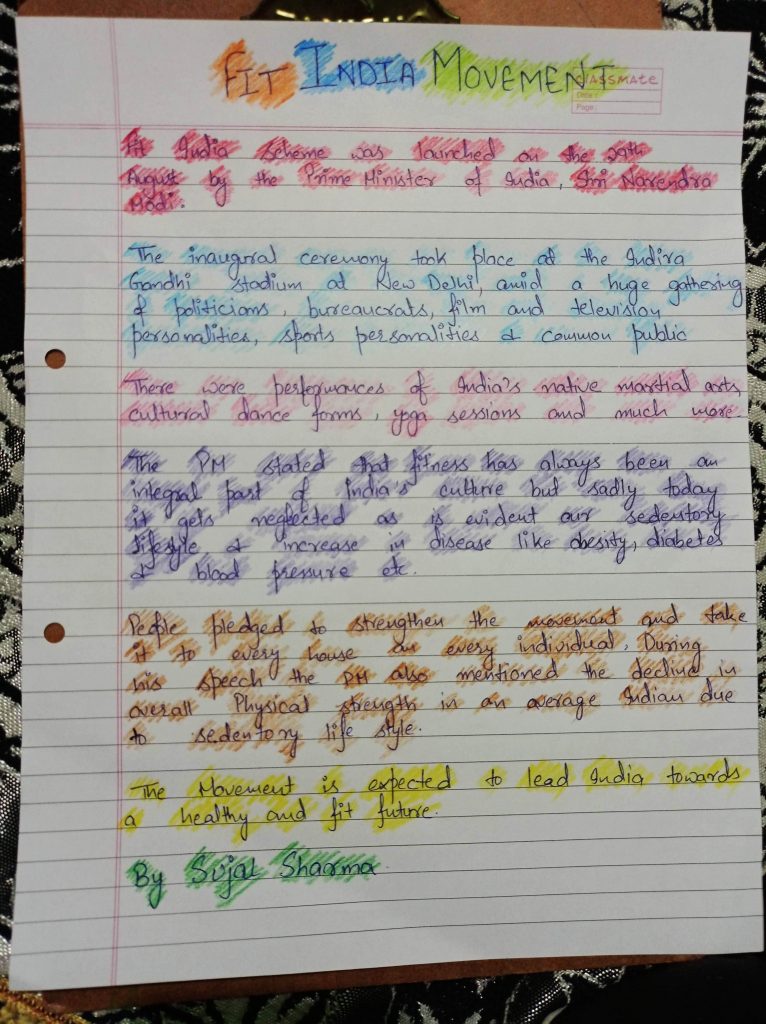 FIT INDIA MOVEMENT
CLASSMATE
Date :
Page :
Fit India scheme was launched on the 29th
August by the Prime Minister of India, Shri Narendra
Modi.
The inaugral ceremony took place at the Indira
Gandhi stadium at New Delhi, amid a huge gathering
of politicians, bureaucrats, film and television
personalities, sports personalities & common public
There were performances of India's native martial arts,
cultural dance forms, yoga sessions and much more.
The PM stated that fitness has always been an
integral part of India's culture but sadly today
it gets neglected as is evident our sedentory
lifestyle & increase in disease like obesity, diabetes
& blood pressure etc.
People pledged to strengthen the movement and take
it to every house an every individual, During
his speech the PM also mentioned the decline in
overall Physical strength in an average Indian due
to sedentory life style.
The Movement is expected to lead India towards
a healthy and fit future.
By Sujal Sharma.